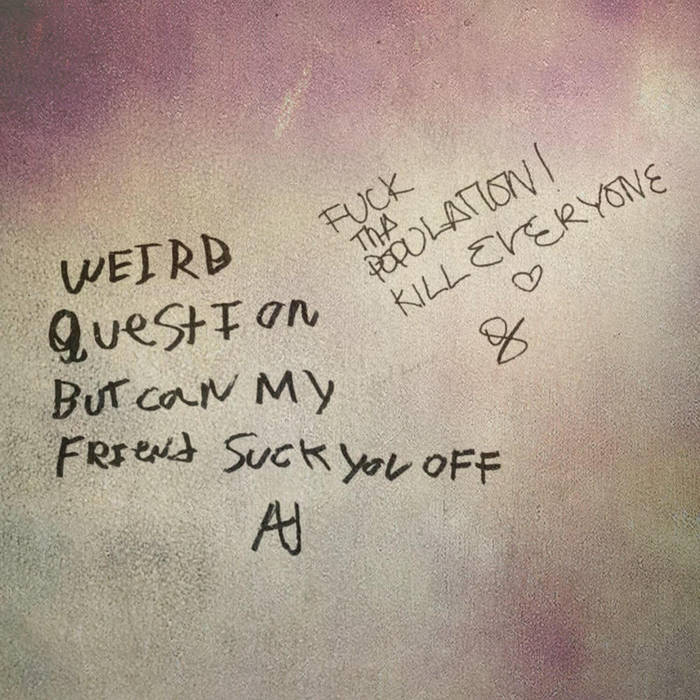 WEIRD
QueStIon
BuT caN MY
FRIend SucK you OFF
AJ
FUCK
THA
POPULATION!
KILL EVERYONE
♡
8